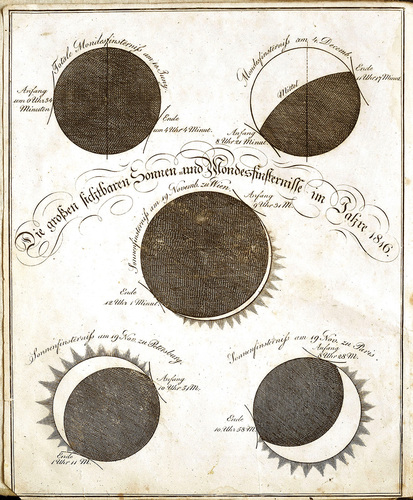 Totale Mondesfinsterniß am 10 Juny.
Anfang
um 0 Uhr 34
Minuten
Ende
um 4 Uhr 4 Minut.
Mondsfinsterniß am 4 Decemb.
Ende
11 Uhr 17 Minut.
Mittel
Anfang
8 Uhr 21 Minut.
Die großen sichtbaren Sonnen und Mondesfinsternisse im Jahre 1816.
Sonnenfinsterniß am 19 Novemb. zu Wien.
Anfang
9 Uhr 31 M.
Ende
12 Uhr 1 Minut
Sonnenfinsterniß am 19 Nov. zu Petersburg
Anfang
10 Uhr 51 M.
Ende
1 Uhr 11 M.
Sonnenfinsterniß am 19 Nov. zu Paris
Anfang
8 Uhr 28 M.
Ende
10 Uhr 58 M.